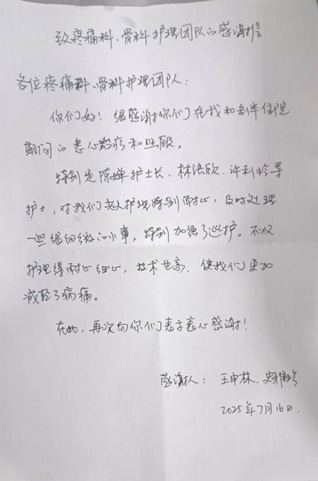 致疼痛科、骨科护理团队的感谢信
各位疼痛科、骨科护理团队：
你们好！很感谢你们在我和老伴住院
期间的悉心治疗和照顾。
特别是陈婵护士长、林洁欣、许利玲等
护士，对我们老人护理得特别耐心，及时处理
一些很细微的小事，特别加强了巡护。不仅
护理得耐心细心，技术也高，使我们更加
减轻了病痛。
在此，再次向你们表示衷心感谢！
感谢人：王中林、
2025年7月16日.